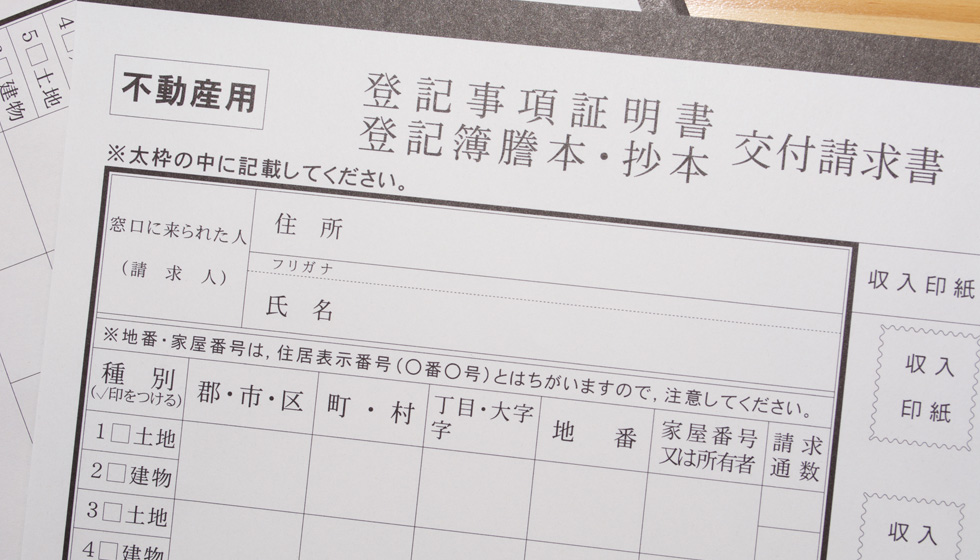 4□
5□土地
□建物
不動産用
登記事項証明書
登記簿謄本・抄本
交付請求書
※太枠の中に記載してください。
窓口に来られた人
（請求人）
住所
フリガナ
氏名
収入印紙
収入
印紙
※地番・家屋番号は，住居表示番号（〇番〇号）とはちがいますので，注意してください。
種別
（√印をつける）
郡・市・区
町・村
丁目・大字
字
地番
家屋番号
又は所有者
請求
通数
1□土地
2□建物
3□土地
4□建物
収入